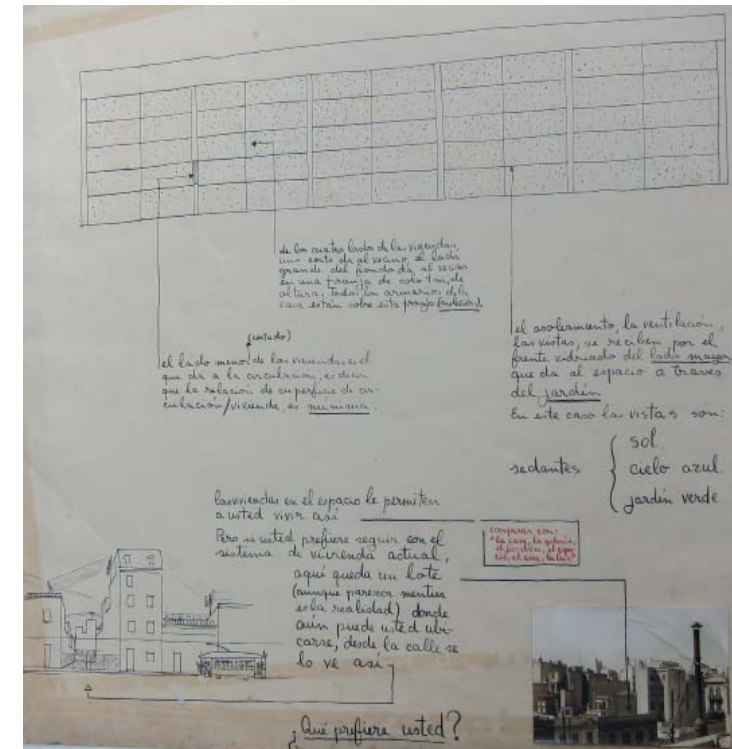 de los cuatro lados de las viviendas,
uno corto da al vecino, el lado
grande del fondo da al vecino
en una franja de solo 1 m, de
altura, todos los armarios de la
casa están sobre esta franja (aislación).
(cortado)
el lado menor de las viviendas es el
que da a la circulación, es decir
que la relación de superficie de cir-
culación/vivienda, es mínima.
el asoleamiento, la ventilación,
las vistas, se reciben por el
frente vidriado del lado mayor
que da al espacio a través
del jardín
En este caso las vistas son:
sedantes
sol
cielo azul
jardín verde
las viviendas en el espacio le permiten
a usted vivir así
Pero si usted prefiere seguir con el
sistema de vivienda actual,
aquí queda un lote
(aunque parezca mentira
es la realidad) donde
aún puede usted ubi-
carse, desde la calle se
lo ve así
comparar con:
"la casa, la galería,
el jardín, el espa-
cio, el aire, la luz"
¿Qué prefiere usted?